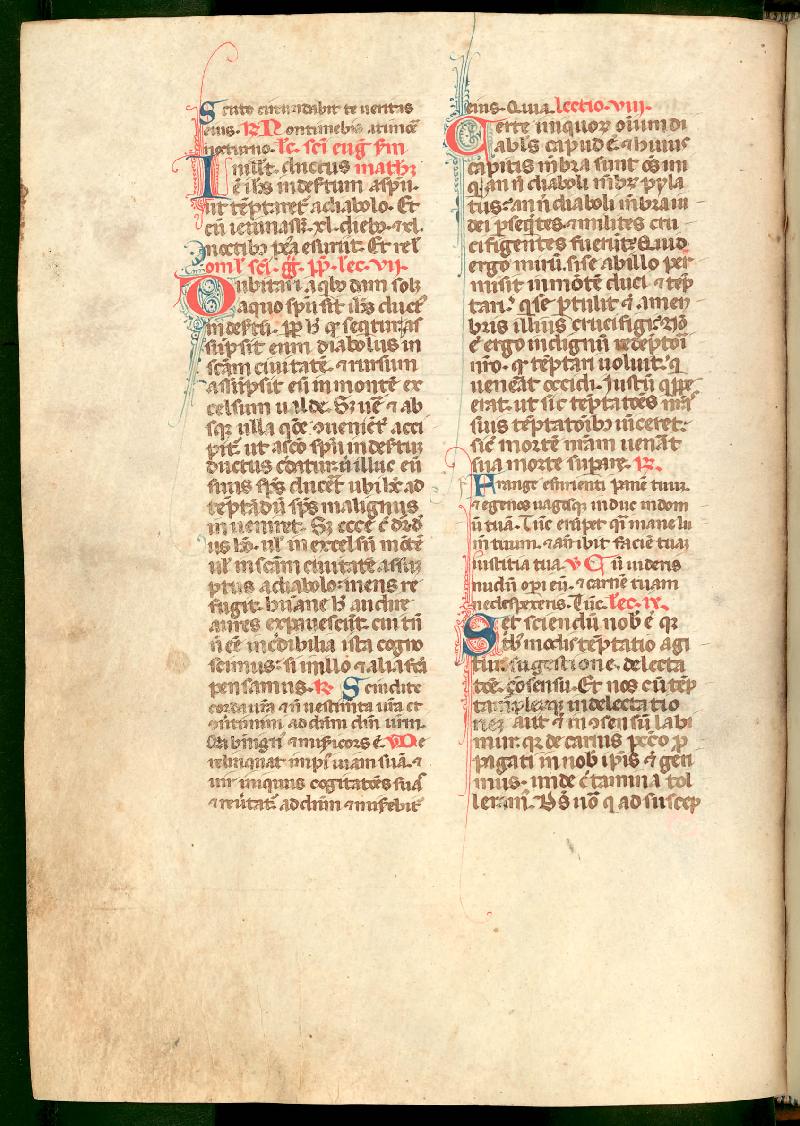 Scuto circumdabit te veritas
eius. R Non timebis a timore
nocturno. lc. sci eug. sm
In illt. ductus math
e ihs in desertum a spu.
ut teptaret a diabolo. Et
cu ieiunass. xl. dieb. et xl.
noctib postea esuriit. Et rel
omł sci. g. pp. lec. vii.
Dubitari a qbdam solz
a quo spu sit ihs duct
in deserto. pp h qr seqtur as
supsit eum diabolus in
scam ciuitate. et rursum
assupsit eu in monte ex
celsum ualde. Sz ue et ab
sqz ulla qõe ouenient acci
pit. ut a sco spu in desertu
ductus credatur ut illuc eu
suus sps duceret ubi hc ad
teptadu sps malignus
inueniret. Sz ecce c dr d
us ho. ul in excelsu monte
ul in scam ciuitate assu
ptus a diabolo. mens re
fugit. humane h audire
aures expauescut. cui tn
n ee incredibilia ista cogno
scimus. si in illo et alia fca
pensamus. R Scindite
corda ura et n uestimta ura et
conuertimini ad dnm dm urm.
Qr benign et misericors e. V De
relinquat impi uiam sua. et
uir iniquus cogitatoes suas
et reutat ad dnm et miserebit
eius. Quia. lectio. viii.
Certe iniquor oium di
abls capud e. et huius
capitis mbra sunt oes iniqui
an n diaboli mbr pyla
tus. an n diaboli mbra iu
dei pseqtes. et milites cru
cifigentes fuerut. Quid
ergo miru. si se ab illo per
misit in mote duci. et tep
tari. q se ptulit et a mem
bris illius crucifigi. No
e ergo indignu redeptori
nro. qr teptari uoluit. q
uenerat occidi. Justu qppe
erat. ut sic teptatoes nras
suis teptatoib uinceret.
sic morte nram uenerat
sua morte supare. R.
Frange esurienti pane tuu.
et egenos uagosqz induc in dom
u tua. Tuc erupet qi mane lu
m tuum. et anteibit facie tua
iustitia tua. V Cu uideris
nudu opi eu. et carne tuam
ne despexeris. Tuc. lec. ix.
Set sciendu nob e qr
trib modis teptatio agi
tur. sugestione. delecta
toe. cosensu. Et nos cu tep
tamur plerqz in delectatio
nez aut et in cosensu labi
mur. qr de carnis pcco p
pagati in nob ipis et geri
mus. unde ctamina tol
leram. Ds uo q ad suscep